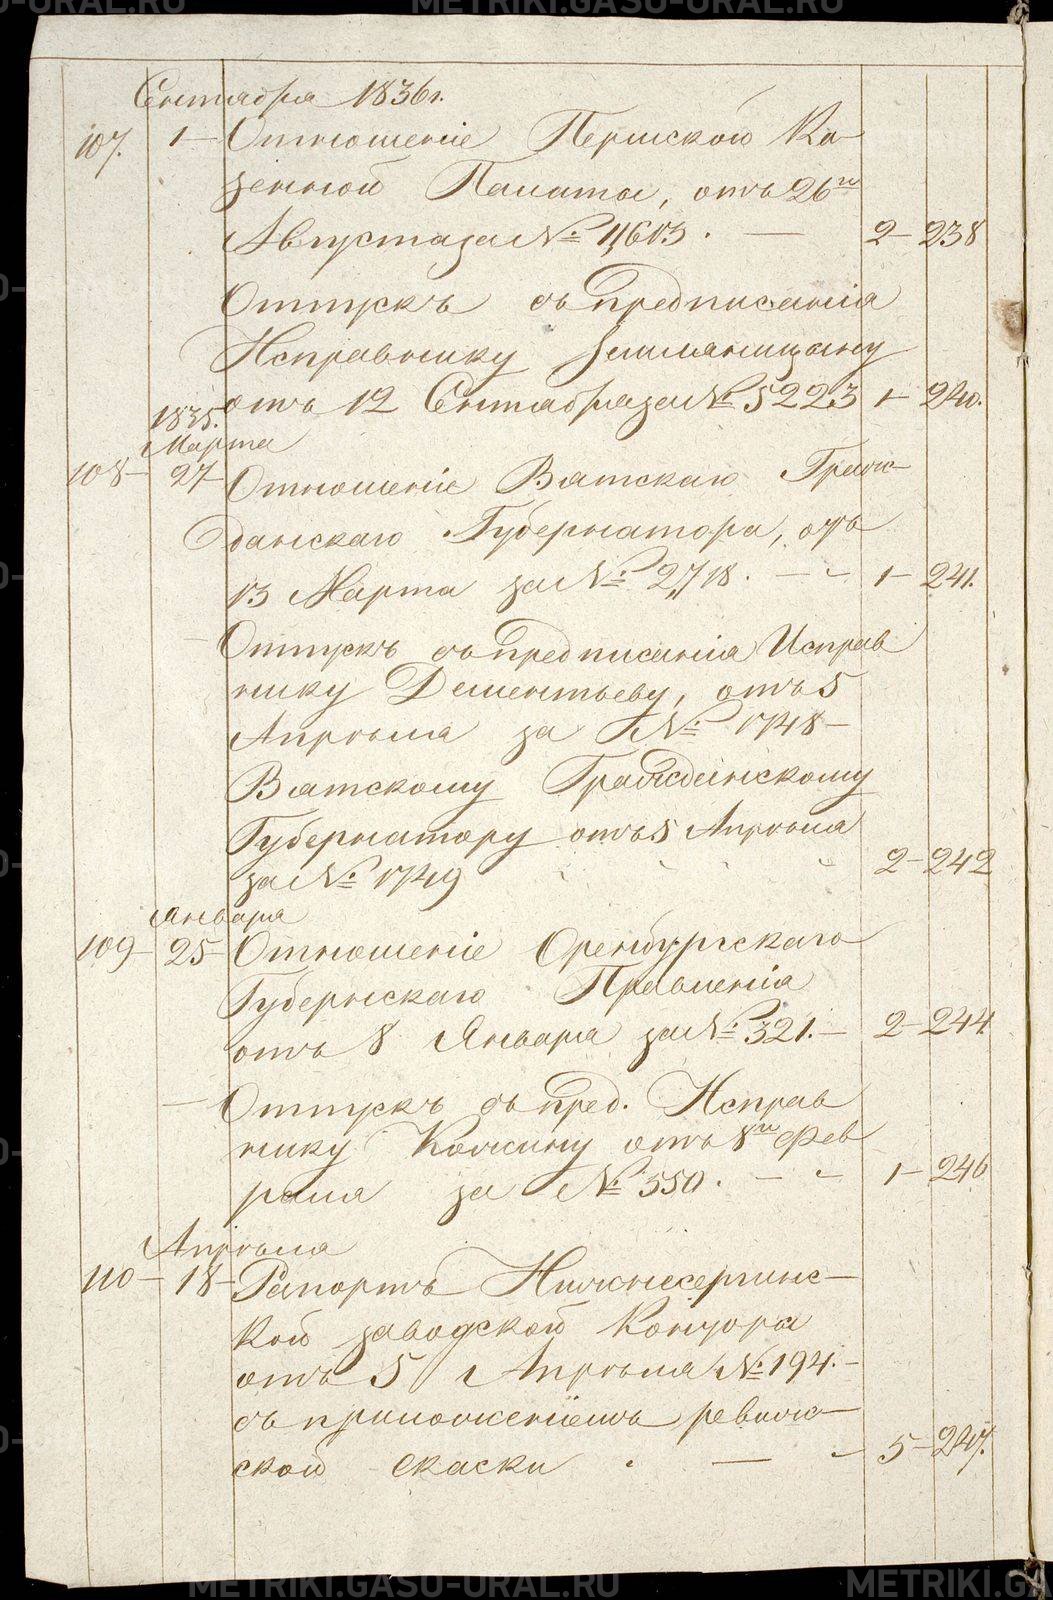 METRIKI.GASU-URAL.RU
Сентября 1836г.
107. 1 — Отношеніе Пермской Ка-
зенной Палаты, отъ 26го
Августа за № 11613. — 2 — 238
Отпускъ съ предписанія
Исправнику Земляницыну
отъ 12 Сентября за № 5223 1 — 240.
1835.
Марта
108 — 27 — Отношеніе Вятскаго Граж-
данскаго Губернатора, отъ
13 Марта за № 2,718. — 1 — 241.
— Отпускъ съ предписанія Исправ
нику Дементьеву, отъ 5
Апрѣля за № 1748 —
Вятскому Гражданскому
Губернатору отъ 5 Апрѣля
за № 1749 2 — 242
Января
109 — 25 — Отношеніе Оренбургскаго
Губернскаго Правленія
отъ 8 Января за № 321. — 2 — 244
— Отпускъ съ пред. Исправ
нику Кожину отъ 8го Фев
раля за № 550. — 1 — 246
Апрѣля
110 — 18 — Рапортъ Нижнесергинс-
кой заводской Контора
отъ 5 Апрѣля № 194. —
съ приложеніемъ ревиж-
ской скаски — 5 — 247.
METRIKI.GASU-URAL.RU